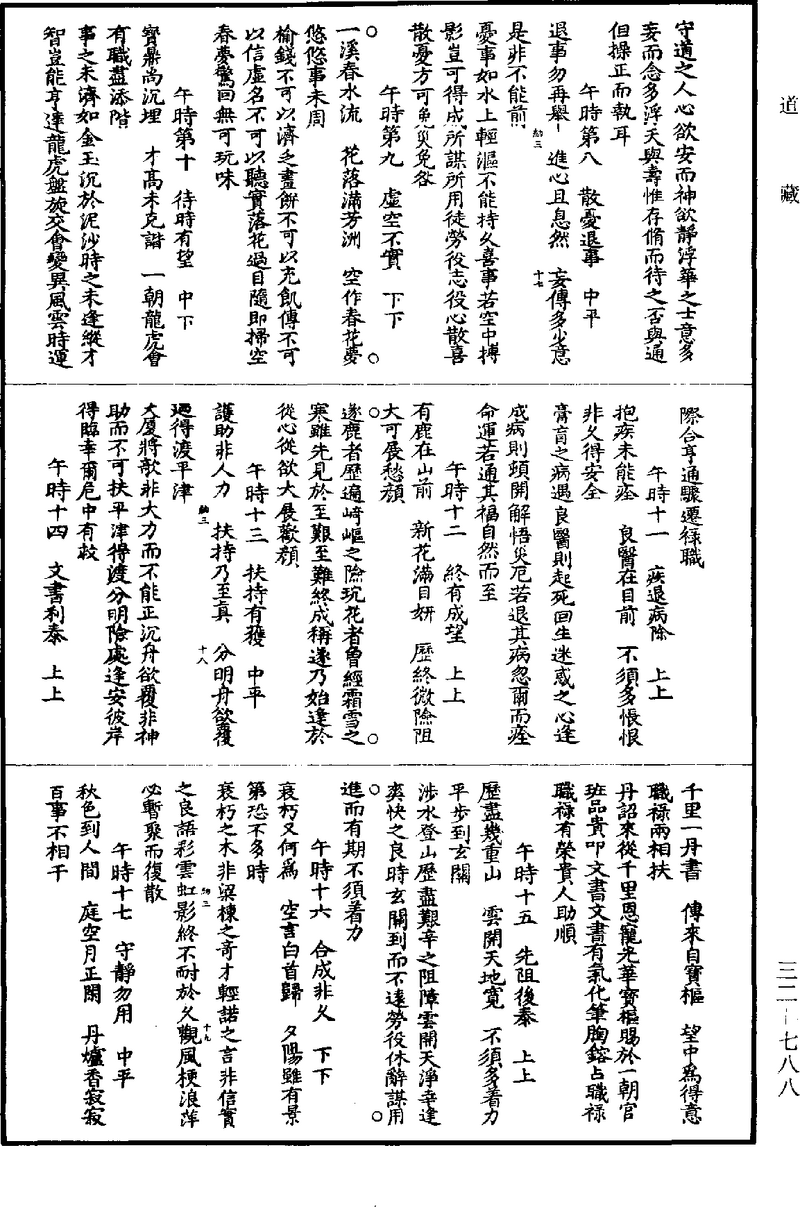 道藏
三二－七八八
守道之人心欲安而神欲靜浮華之士意多
妄而念多浮夭與壽惟存脩而待之否與通
但操正而執耳
午時第八　散憂退事　中平
退事勿再舉　進心且息然　妄傳多少意
是非不能前
憂事如水上輕漚不能持久喜事若空中搏
影豈可得成所謀所用徒勞役志役心散喜
散憂方可免災免咎
午時第九　虛空不實　下下
一溪春水流　花落滿芳洲　空作春花夢
悠悠事未周
榆錢不可以濟乏畫餅不可以充飢傳不可
以信虛名不可以聽實落花過目隨即掃空
春夢驚回無可玩味
午時第十　待時有望　中下
寶鼎尚沉埋　才高未克諧　一朝龍虎會
有職盡添階
事之未濟如金玉沉於泥沙時之未逢縱才
智豈能亨達龍虎盤旋交會變異風雲時運
際合亨通驟遷祿職
午時十一　疾退病除　上上
抱疾未能痊　良醫在目前　不須多悵恨
非久得安全
膏肓之病遇良醫則起死回生迷惑之心逢
成病則頓開解悟災厄若退其病忽爾而痊
命運若通其福自然而至
午時十二　終有成望　上上
有鹿在山前　新花滿目妍　歷終微險阻
大可展愁顏
逐鹿者歷遍崎嶇之險玩花者曾經霜雪之
寒雖先見於至艱至難終成稱遂乃始逢於
從心從欲大展歡顏
午時十三　扶持有獲　中平
護助非人力　扶持乃至真　分明舟欲覆
還得渡平津
大廈將欹非大力而不能正沉舟欲覆非神
助而不可扶平津得渡分明險處逢安彼岸
得臨幸爾危中有救
午時十四　文書利泰　上上
千里一丹書　傳來自寶樞　望中為得意
職祿兩相扶
丹詔來從千里恩寵光華寶樞賜於一朝官
班品貴叩文書文書有氣化筆胸鎔占職祿
職祿有榮貴人助順
午時十五　先阻後泰　上上
歷盡幾重山　雲開天地寬　不須多着力
平步到玄關
涉水登山歷盡艱辛之阻障雲開天淨幸逢
爽快之良時玄關到而不遠勞役休辭謀用
進而有期不須着力
午時十六　合成非久　下下
衰朽又何為　空言白首歸　夕陽雖有景
第恐不多時
衰朽之木非梁棟之奇才輕諾之言非信實
之良語彩雲虹影終不耐於久觀風梗浪萍
必暫聚而復散
午時十七　守靜勿用　中平
秋色到人間　庭空月正閑　丹爐香寂寂
百事不相干